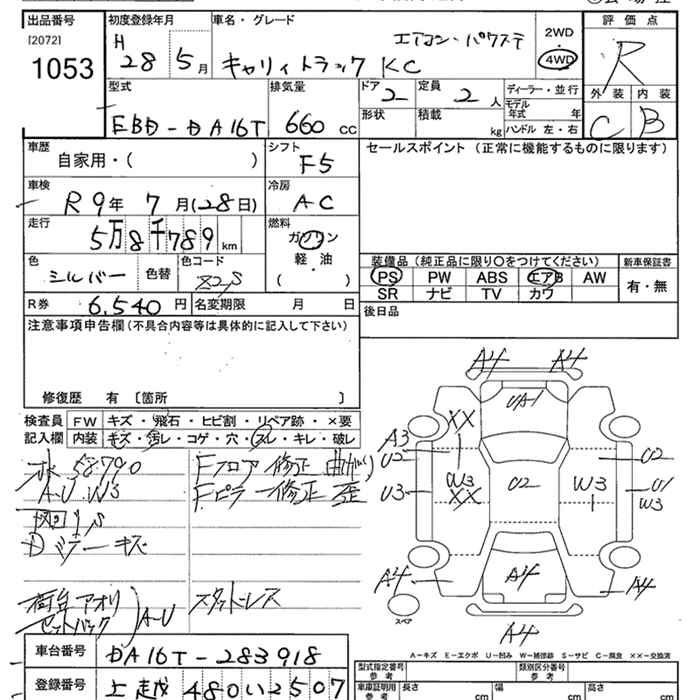 出品番号 初度登録年月 車名・グレード 評価点
[2072]
1053
H 28 5月 キャリイトラック KC エアコン・パワステ 2WD 4WD R
型式 排気量 ドア 定員 ディーラー・並行 外装 内装
EBD-DA16T 660 CC 2 2人 モデル年式 年 C B
形状 積載 kg ハンドル 左・右
車歴 シフト セールスポイント (正常に機能するものに限ります)
自家用・( ) F5
車検 冷房
R9年 7月(28日) AC
走行 燃料
5万8千789km ガソリン
軽・油
( )
色 色替 色コード
シルバー Z2S
装備品 (純正品に限り○をつけてください) 新車保証書
PS PW ABS エアB AW 有・無
SR ナビ TV カワ
R券 6,540円 名変期限 月 日
後日品
注意事項申告欄 (不具合内容等は具体的に記入して下さい)
修復歴 有 〔箇所 〕
検査員 FW キズ・飛石・ヒビ割・リペア跡・×要
記入欄 内装 キズ・汚レ・コゲ・穴・スレ・キレ・破レ
58790
A-U W3
Fフロア修正 曲がり
Fピラー修正 歪
荷台アオリ
セットバック
A-U
スタッドレス
A4 A4
UA-1
XX
A3
U2
U3
W3
XX
U2
W3
U2
U1
W3
A4
A4
A4
A4
スペア
A-キズ E-エクボ U-凹み W-補修跡 S-サビ C-腐食 ××-交換済
車台番号 DA16T-283918
登録番号 上越 480 い 2507
型式指定番号 参考 類別区分番号 参考
車庫証明用 参考 長さ cm 幅 cm 高さ cm